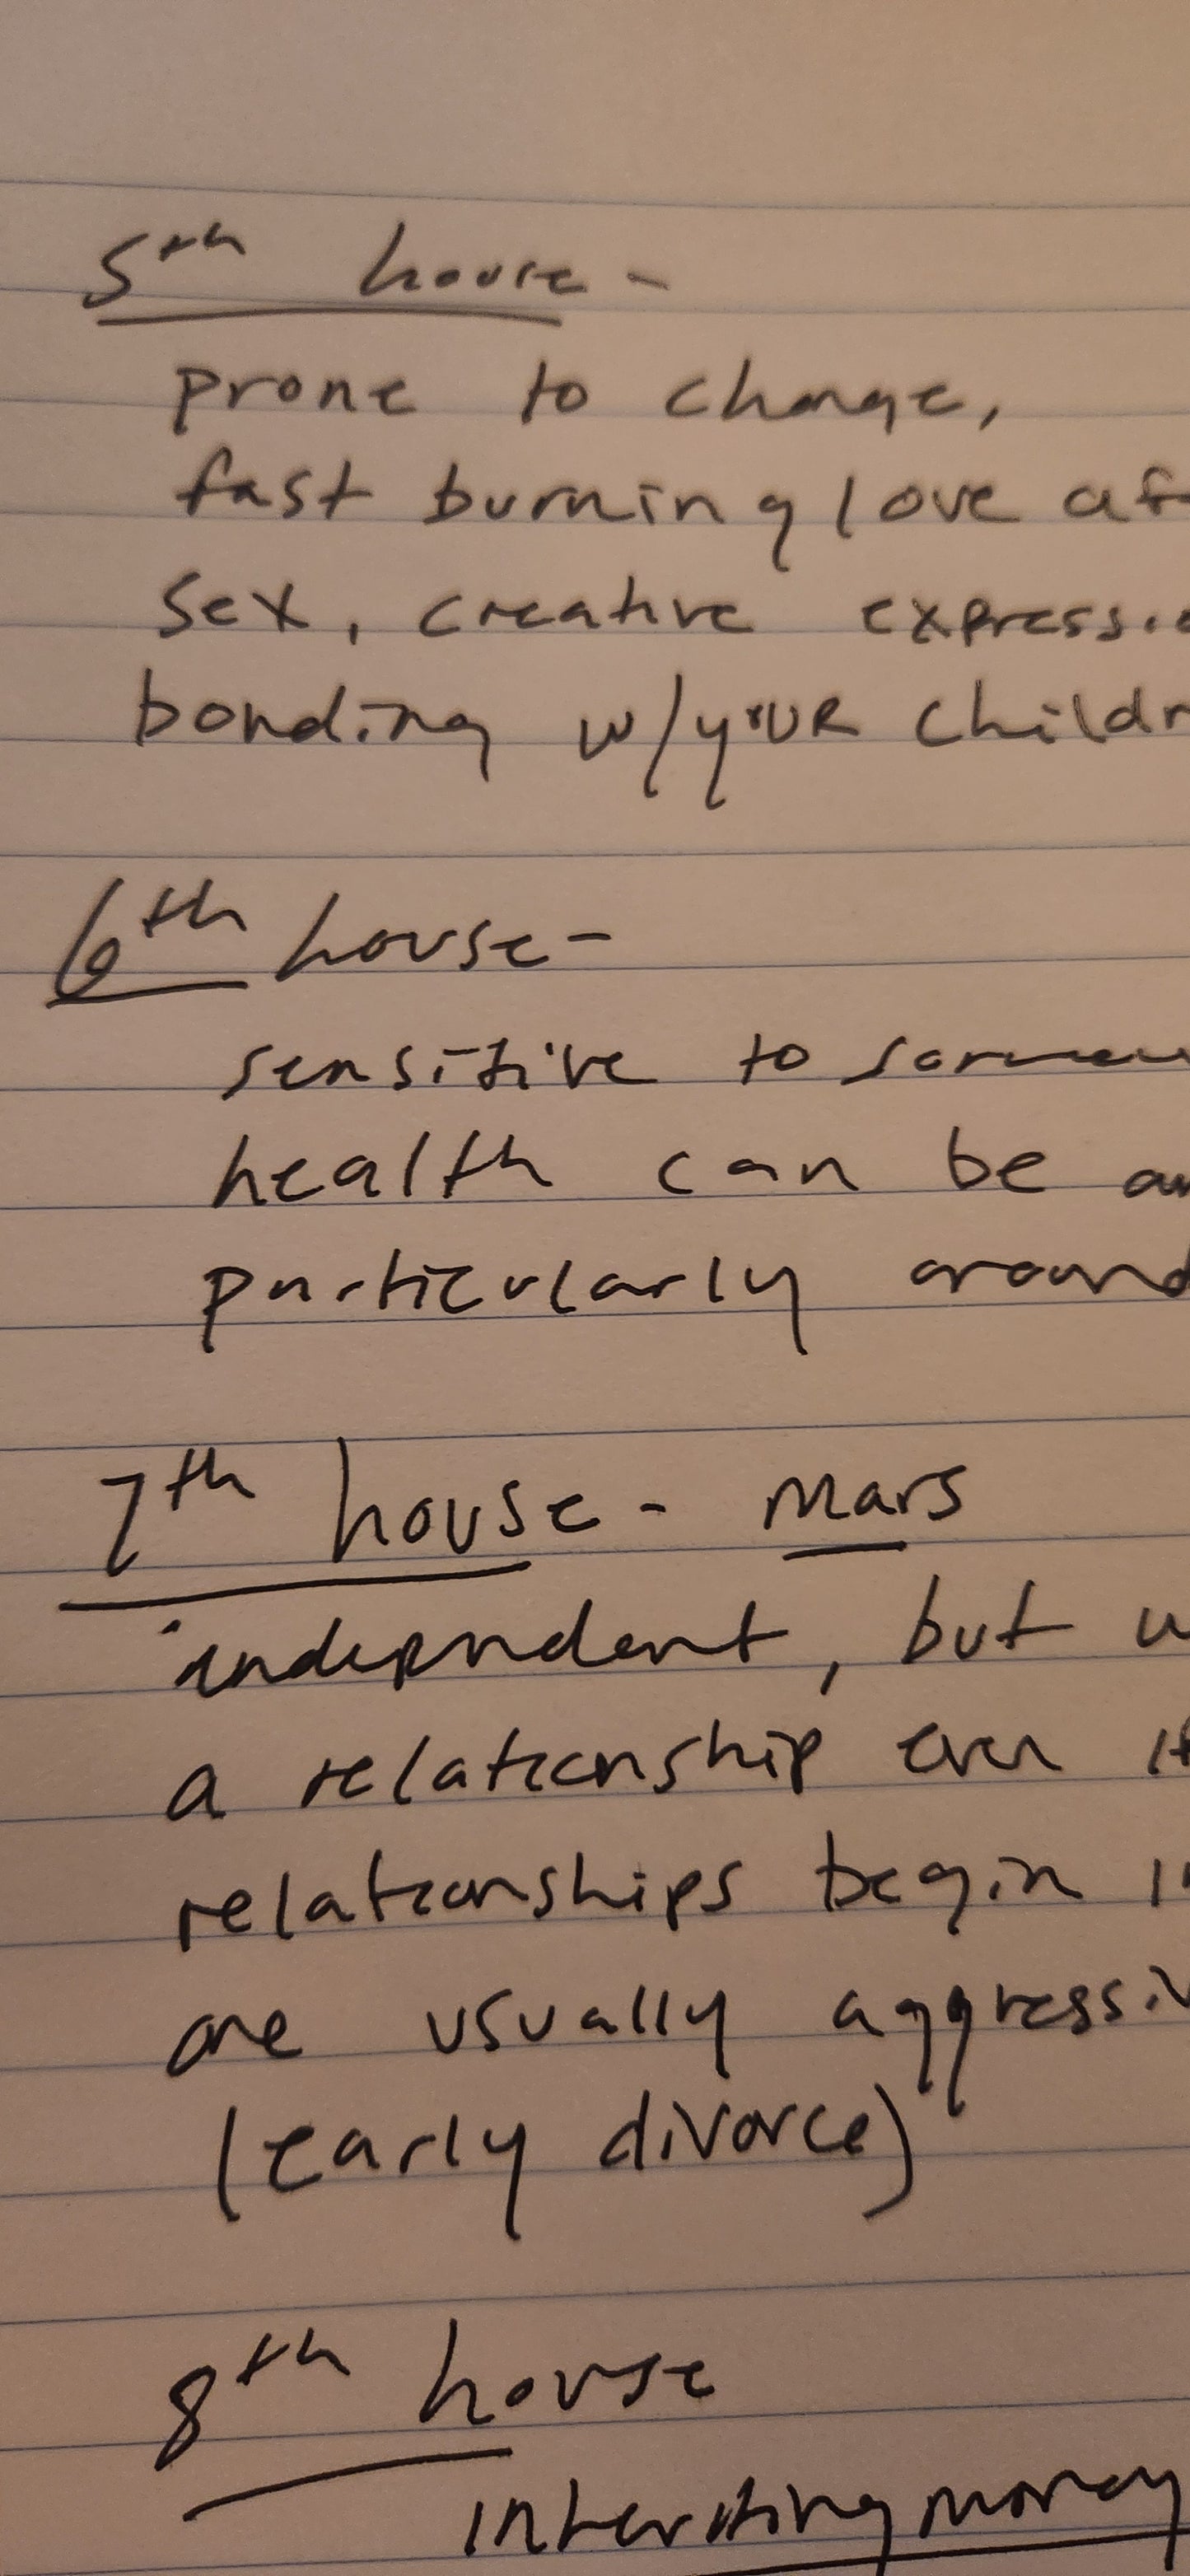 5th house -
prone to change,
fast burning love af
sex, creative expressio
bonding w/your childr
6th house -
sensitive to
health can be
particularly around
7th house - Mars
independent, but w
a relationship even if
relationships begin i
are usually aggressiv
(early divorce)
8th house
inheriting money